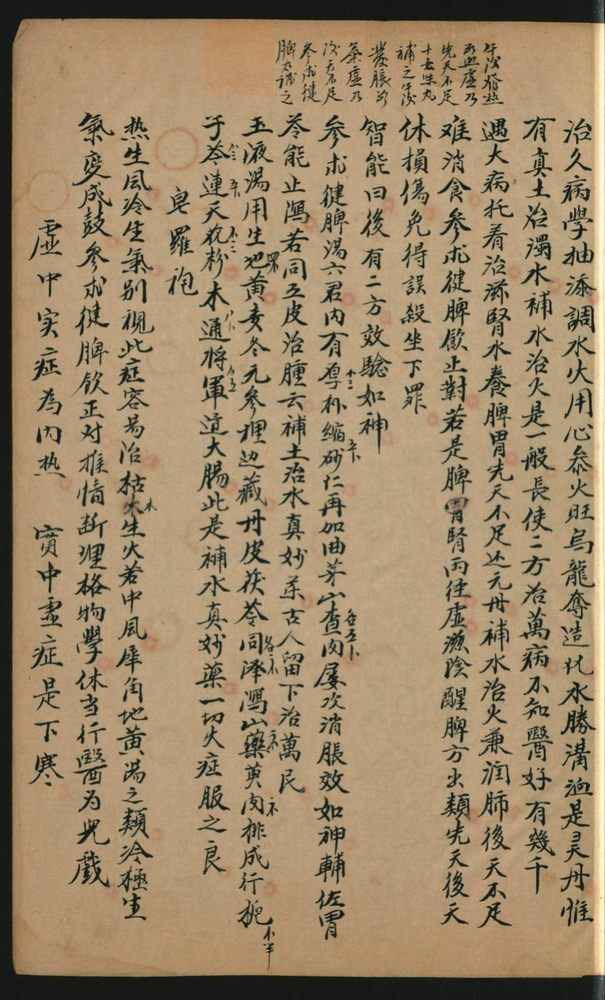 午後發熱
乃血虛乃
先天不足
十全味丸
補之午後
發脹乃
氣虛乃
後天不足
參朮健
脾丸補之
治久病學抽添調水火用心參火旺烏龍奪造化水勝滿迪是灵丹惟
有真土治濁水補水治火是一般長使二方治萬病不知醫好有幾千
遇大病托着治滋腎水養脾胃先天不足还元丹補水治火兼润肺後天不足
难消食參朮健脾飲止對若是脾胃腎丙往虛滋陰醒脾方出類先天後天
休損傷免得誤殺坐下罪
智能曰後有二方效驗如神
參朮健脾湯六君内有厚朴縮砂仁再加曲芽山查肉屡次消脹效如神輔佐胃
苓能止瀉若同五皮治腫云補土治水真妙柔古人留下治萬民
玉液湯用生地黄麦冬元參裡边藏丹皮茯苓同泽瀉山藥萸肉排成行梔
子芩連天花粉木通將軍道大腸此是補水真妙藥一切火症服之良
皂羅袍
热生風冷生氣别視此症容易治枯木生火若中風犀角地黄湯之類冷極生
氣變成鼓參朮健脾飲正对推情断理格物學休当行醫为兒戲
虛中实症為内热　實中虛症是下寒